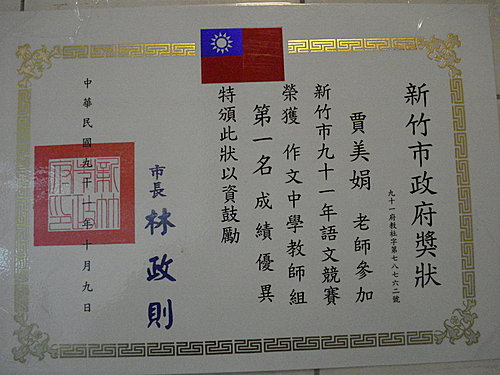 新竹市政府獎狀
九十一府教社字第七八七六二號
賈美娟 老師參加
新竹市九十一年語文競賽
榮獲 作文中學教師組
第一名 成績優異
特頒此狀以資鼓勵
市長 林政則
中華民國九十一年十月九日